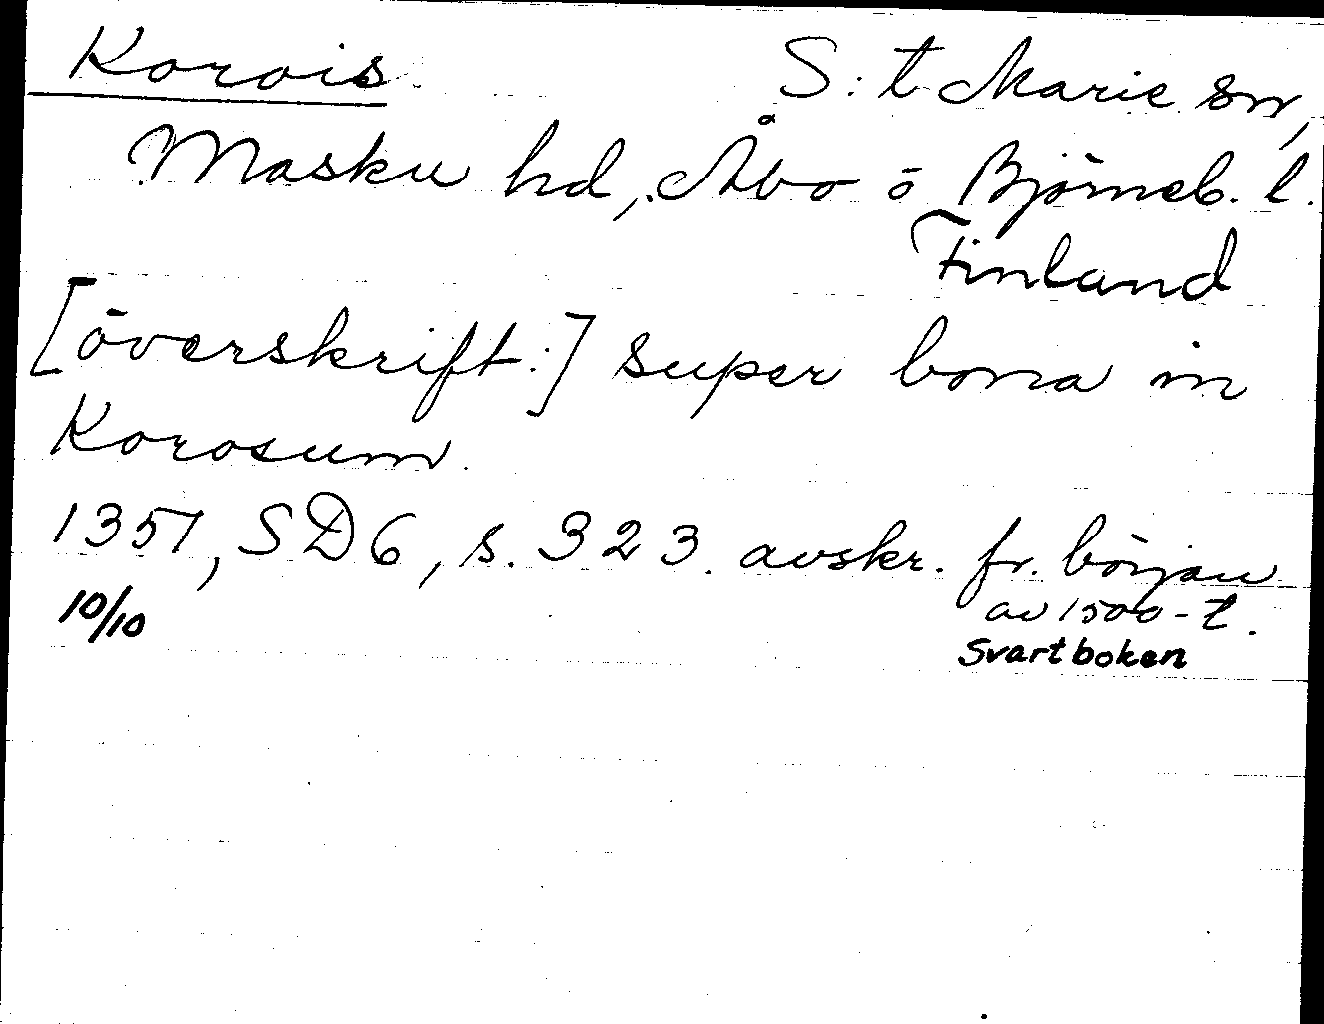 Korois S:t Marie sn,
Masku hd, Åbo o Björneb. l.
Finland
[överskrift:] super bona in
Korosum.
1351, SD6, s. 323. avskr. fr. början
av 1500-t.
10/10 Svartboken